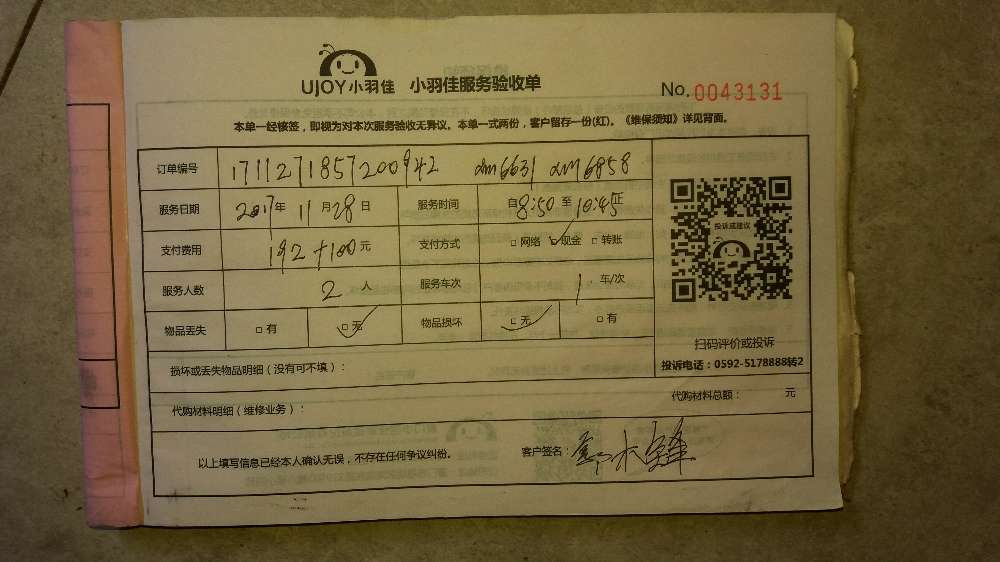 UJOY小羽佳 小羽佳服务验收单
No. 0043131
本单一经核签，即视为对本次服务验收无异议。本单一式两份，客户留存一份(红)。《维保须知》详见背面。
订单编号 171127185720042 dm6631 dm6858
服务日期 2017年 11月28日 服务时间 自8:50至10:45止
支付费用 192+100元 支付方式 □网络 ☑现金 □转账
投诉或建议
服务人数 2人 服务车次 1车/次
物品丢失 □有 ☑无 物品损坏 ☑无 □有
扫码评价或投诉
投诉电话：0592-5178888转2
损坏或丢失物品明细（没有可不填）：
代购材料明细（维修业务）： 代购材料总额： 元
以上填写信息已经本人确认无误，不存在任何争议纠纷。 客户签名：